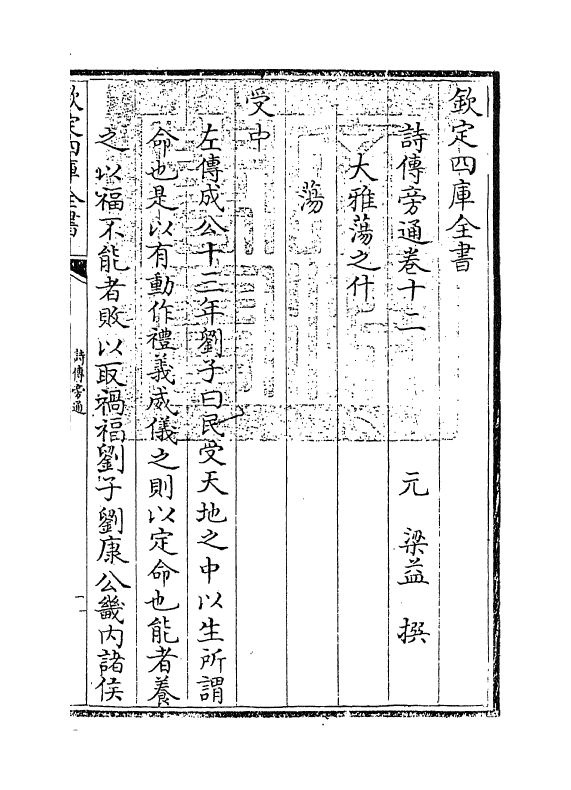 欽定四庫全書
詩傳旁通卷十二
元 梁益 撰
大雅蕩之什
蕩
受中
左傳成公十三年劉子曰民受天地之中以生所謂
命也是以有動作禮義威儀之則以定命也能者養
之以福不能者敗以取禍福劉子劉康公畿内諸侯
欽定四庫全書
詩傳旁通
一